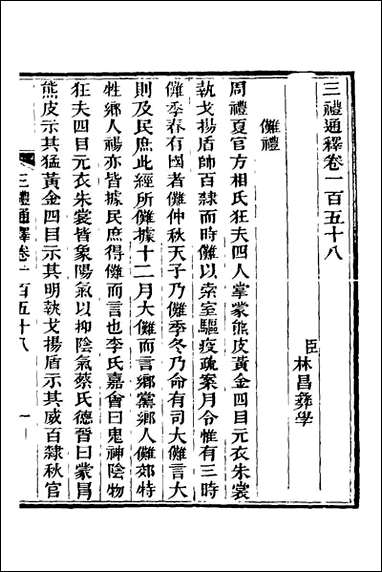 三禮通釋卷一百五十八
臣林昌彞學
儺禮
周禮夏官方相氏狂夫四人掌蒙熊皮黃金四目元衣朱裳
執戈揚盾帥百隸而時儺以索室驅疫疏案月令惟有三時
儺季春有國者儺仲秋天子乃儺季冬乃命有司大儺言大
則及民庶此經所儺據十二月大儺而言鄉黨鄉人儺郊特
牲鄉人禓亦皆據民庶得儺而言也李氏嘉會曰鬼神陰物
狂夫四目元衣朱裳皆象陽氣以抑陰氣蔡氏德晉曰蒙冒
熊皮示其猛黃金四目示其明執戈揚盾示其威百隸秋官
三禮通釋卷一百五十八 一